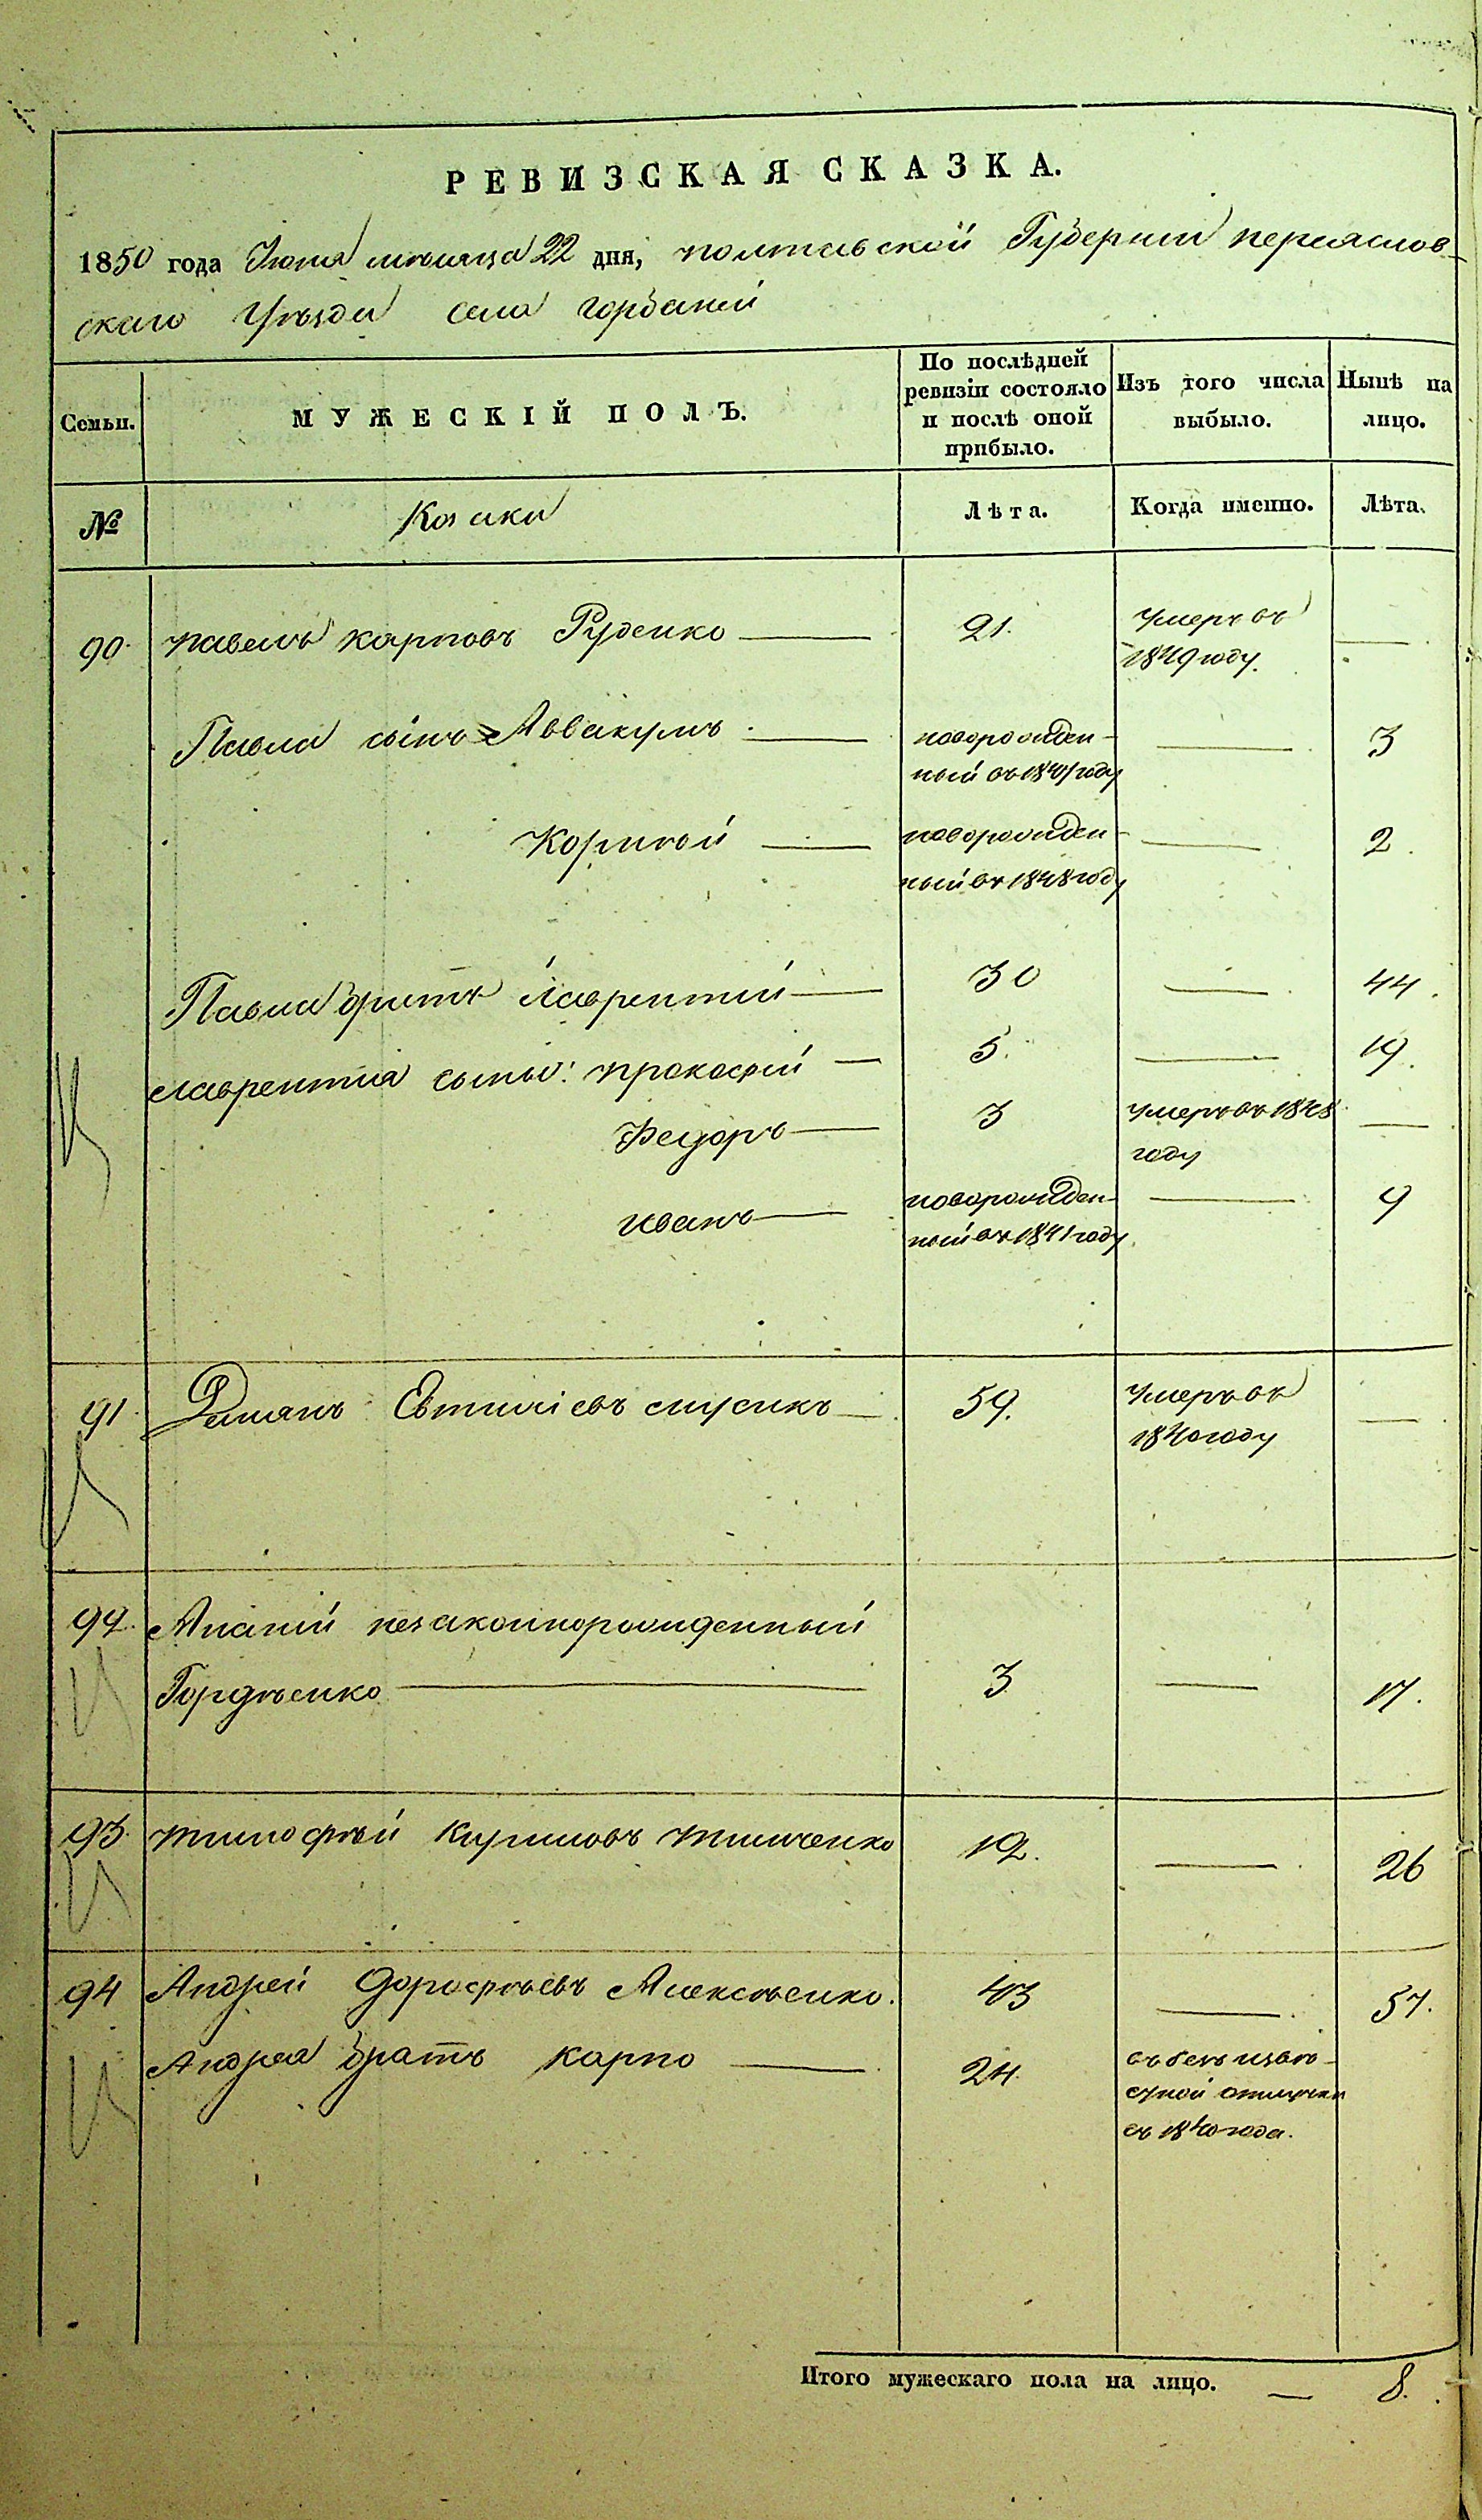 РЕВИЗСКАЯ СКАЗКА.
1850 года Июня месяца 22 дня, полтавской Губернии переяслов-
скаго Уѣзда села Горбаней
Семьи.
МУЖЕСКІЙ ПОЛЪ.
По послѣдней ревизіи состояло и послѣ оной прибыло.
Изъ того числа выбыло.
Нынѣ на лицо.
№
Козаки
Лѣта.
Когда именно.
Лѣта.
90. павелъ карповъ Руденко 21. умеръ въ
1849 году.
Павла сынъ Аввакумъ новорожден- 3
ный въ году
Корнѣй новорожден- 2
ный въ 1848 году
Павла братъ Лаврентій 30 44.
Лаврентія сыны: прокофій 5. 19.
Федоръ 3 умеръ въ 1848
году
иванъ новорожден- 9
ный въ 1841 году
91. Романъ Евтихіевъ 59. умеръ въ
1840 году
92. Ананій незаконнорожденный
Гордѣенко 3 17.
93. тимофѣй Кириловъ тимченко 12. 26
94 Андрей Дорофѣевъ Алексѣенко. 43 57.
Андрея братъ карпо 24. въ безъ извѣ-
стной отлучки
съ 1840 года.
Итого мужескаго пола на лицо. — 8.